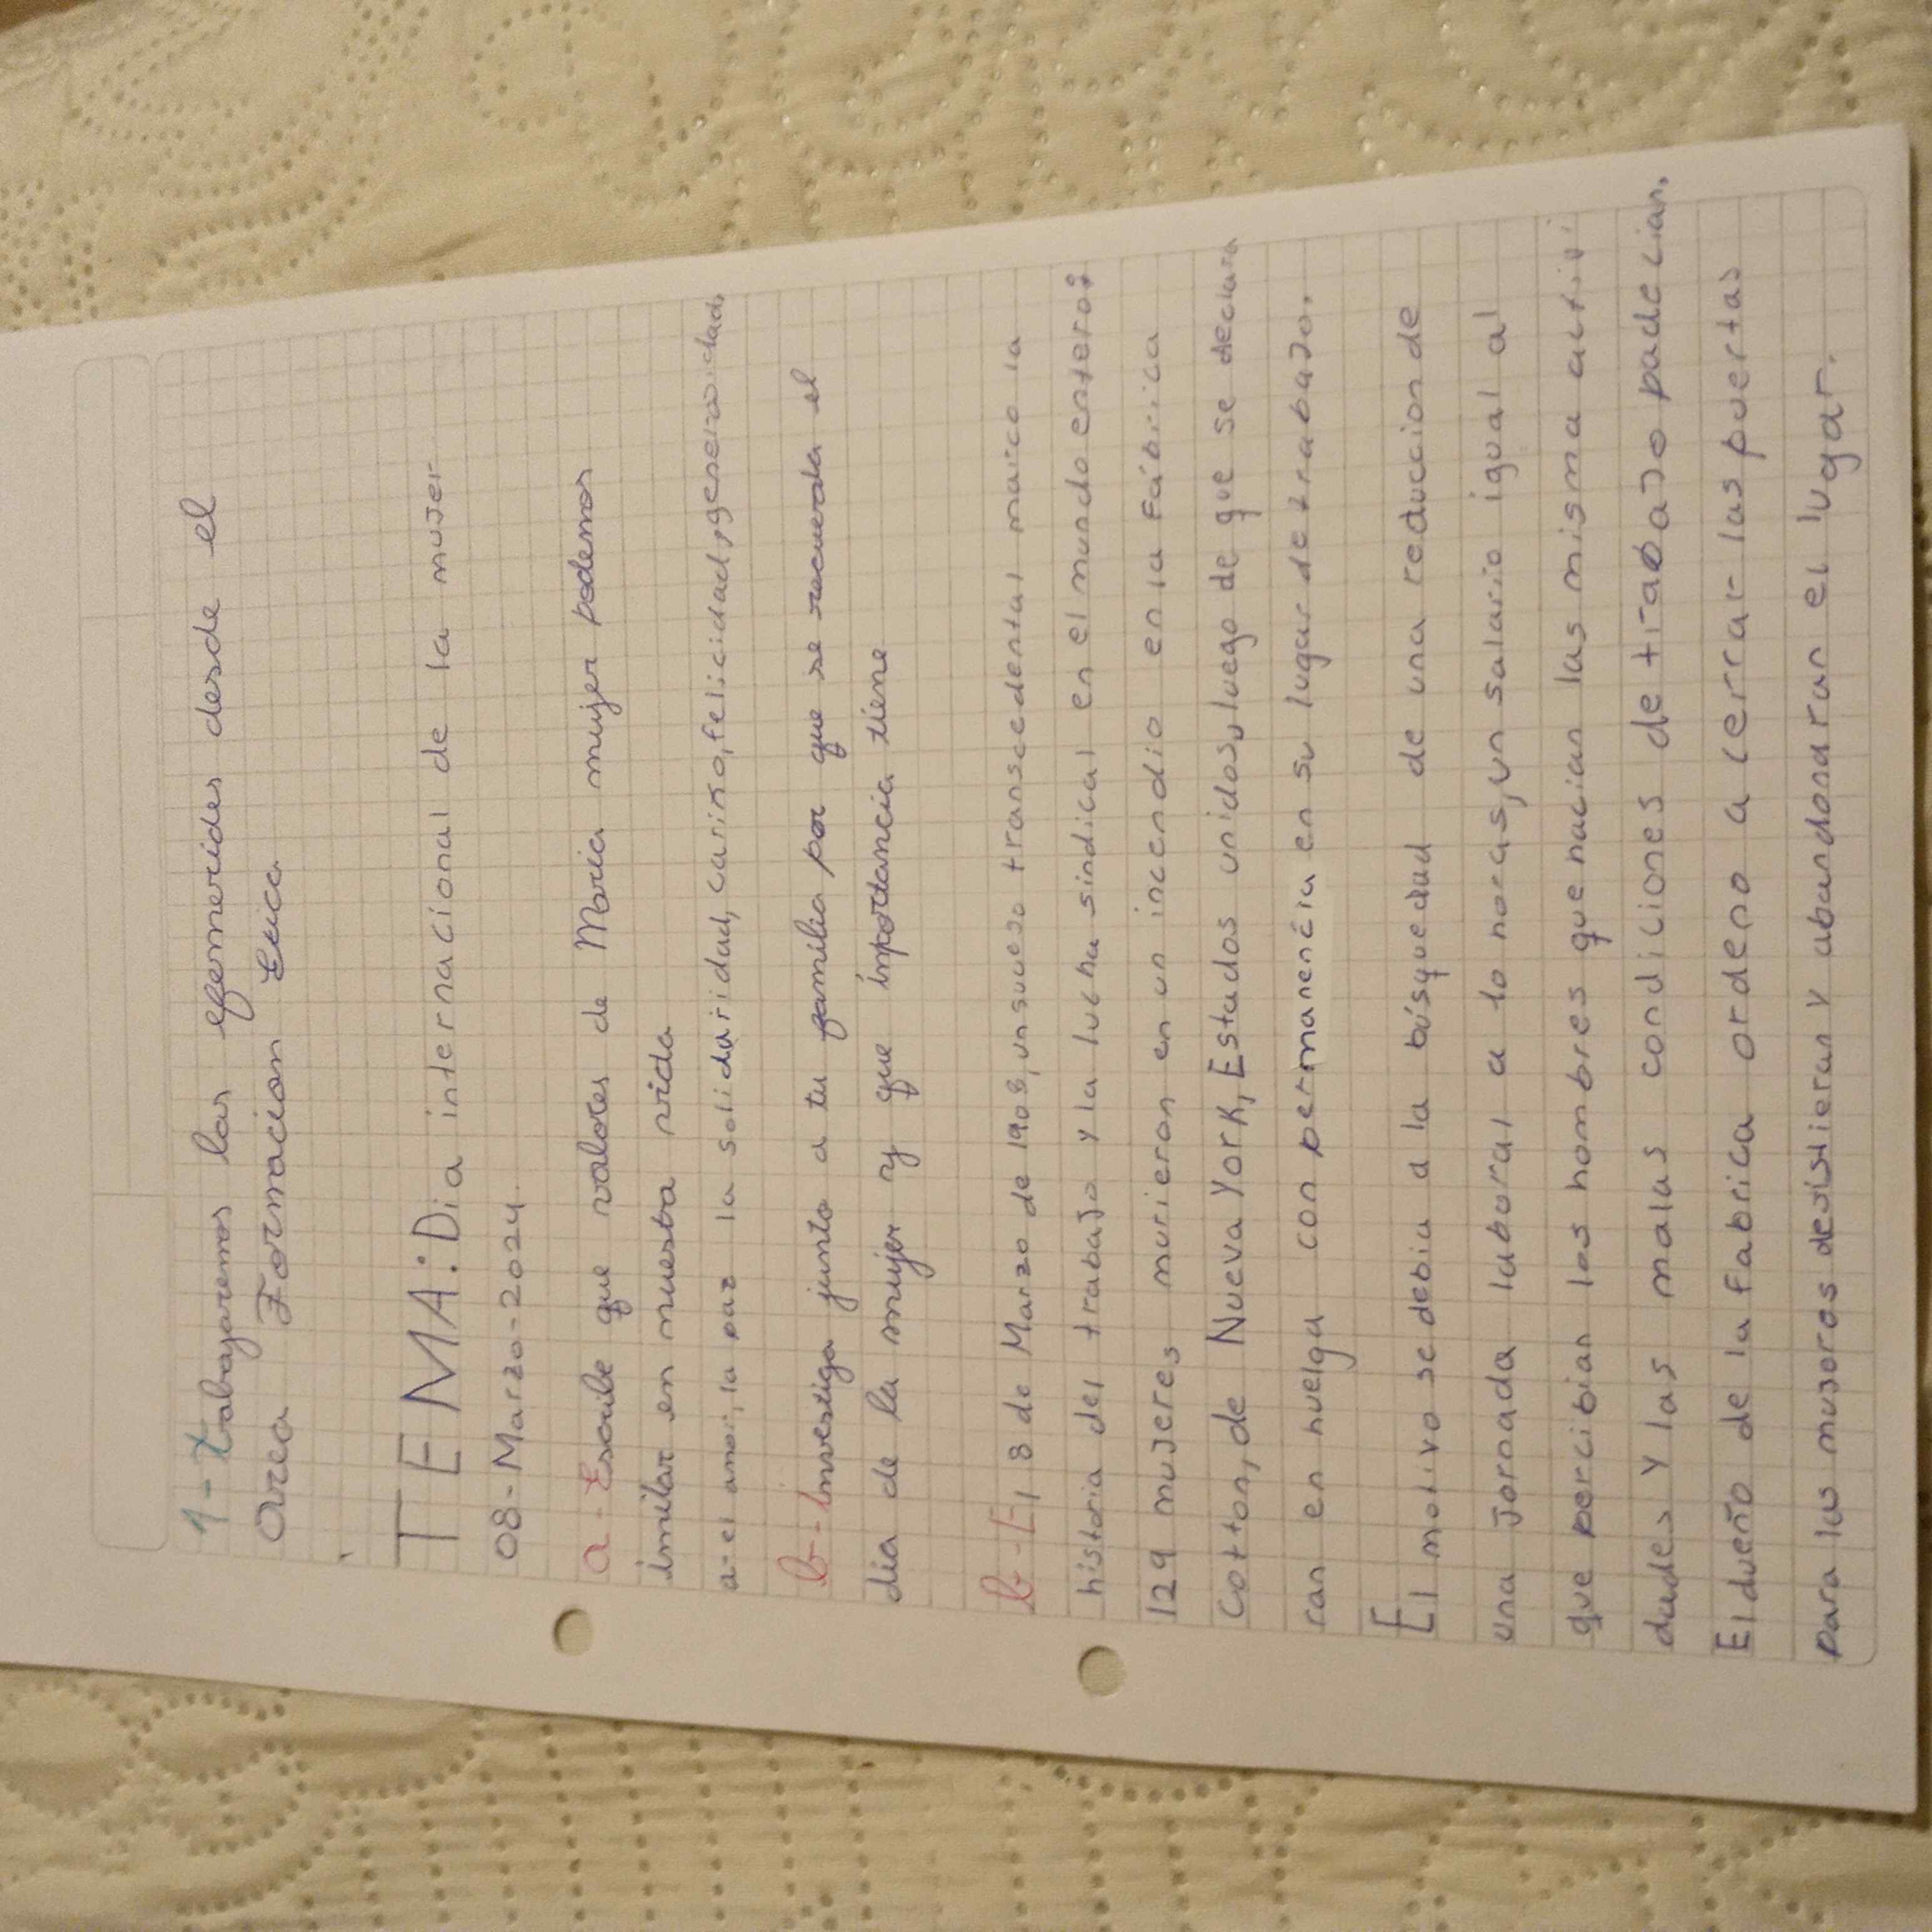 1- trabajaremos las efemerides desde el
Area Formacion Etica
TEMA: Dia internacional de la mujer
08-Marzo-2024
a- Escribe que valores de Maria mujer podemos
imitar en nuestra vida
a- el amor, la paz la solidaridad, cariño, felicidad, generosidad.
b- investiga junto a tu familia por que se recuerda el
dia de la mujer y que importancia tiene
b- El 8 de Marzo de 1908, un suceso transcedental marco la
historia del trabajo y la lucha sindical en el mundo entero:
129 mujeres murieron en un incendio en la Fábrica
Cotton, de Nueva York, Estados unidos, luego de que se declara
ran en huelga con permanencia en su lugar de trabajo.
El motivo se debia a la búsquedad de una reduccion de
una jornada laboral a 10 horas, un salario igual al
que percibian los hombres que hacian las misma activi
dades y las malas condiciones de trabajo padecian.
El dueño de la fabrica ordeno a cerrar las puertas
para las mujeres desistieran y abandonaran el lugar.